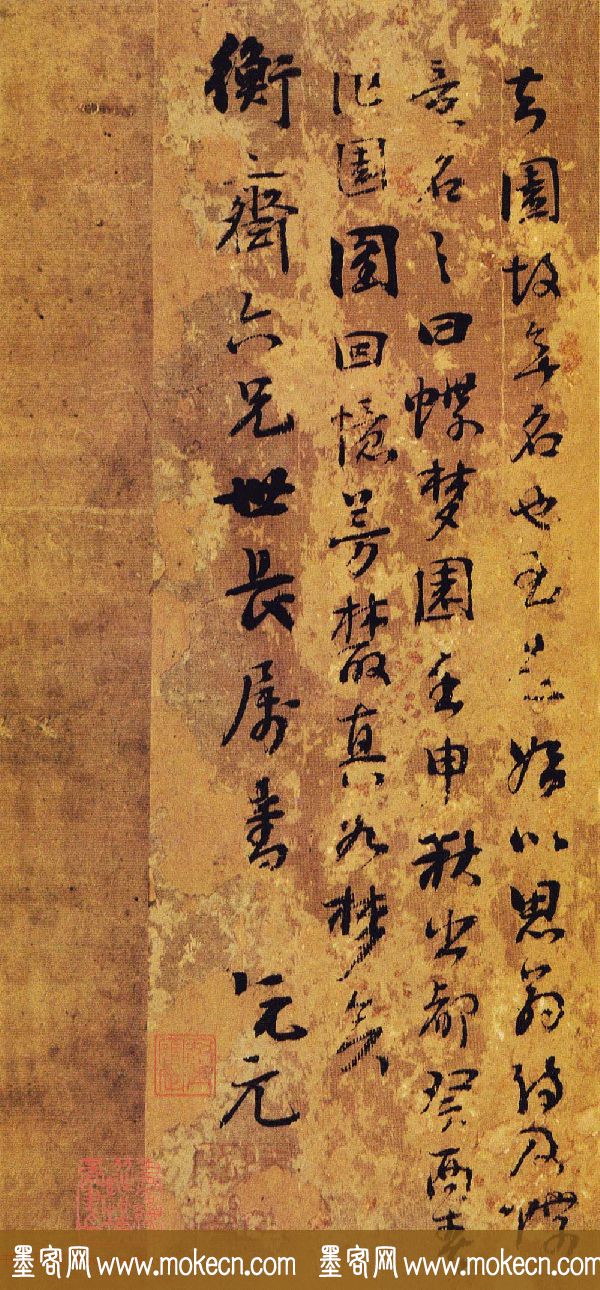 園故無名也至是始以思翁詩及蝶
意名之曰蝶夢園壬申秋出都癸酉春
作園圖回憶芳叢真如夢矣
衡齋六兄世長属書 阮元
墨客网 www.mokecn.com 墨客网 www.mokecn.com